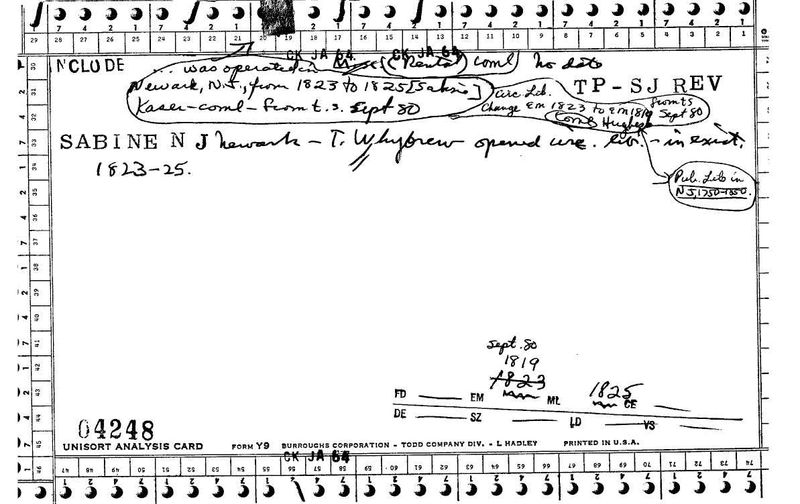 7 4 2 1 7 4 2 1 7 4 2 1 7 4 2 1 7 4 2 1 7 4 2 1 7 4 2 1
29 28 27 26 25 24 23 22 21 20 19 18 17 16 15 14 13 12 11 10 9 8 7 6 5 4 3 2 1
CK JA 64 CK JA 64
NCLUDE ... was operated in (Rental) coml no date
Newark, N.J., from 1823 to 1825 [Sabine] Circ Lib. TP-SJ REV
Kaser-coml-from t.s. Sept 80 Change Em 1823 to Em 1819 from ts Sept 80
Comb Hughes
SABINE N J Newark - T. Whybrew opened circ. lib. - in exist.
1823-25.
Pub. Lib in
NJ, 1750-1850.
30
31
32
33
34
35
36
37
38
39
40
41
42
43
44
45
46
Sept. 80
1819
1823 1825
FD EM ML CE
DE SZ LD VS
04248
UNISORT ANALYSIS CARD FORM Y9 BURROUGHS CORPORATION - TODD COMPANY DIV. - L HADLEY PRINTED IN U.S.A.
CK JA 64
47 48 49 50 51 52 53 54 55 56 57 58 59 60 61 62 63 64 65 66 67 68 69 70 71 72 73 74